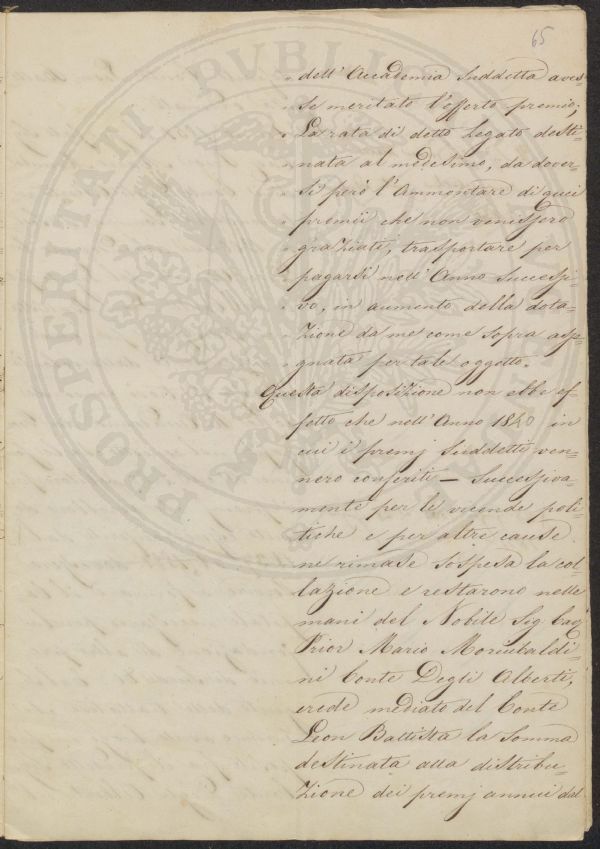 65
„ dell'Accademia suddetta aves=
„ se meritato l'offerto premio;
„ La rata di detto Legato desti=
„ nata al medesimo, da dover=
„ si però l'Ammontare di quei
„ premii che non venissero
„ graziati, trasportare per
„ pagarsi nell'Anno successi=
„ vo, in aumento della dota=
„ zione da me come sopra asse=
„ gnata per tale oggetto.
Questa disposizione non ebbe ef=
fetto che nell'Anno 1840 in
cui i premj suddetti ven=
nero conferiti — Successiva=
mente per le vicende poli=
tiche e per altre cause
ne rimase sospesa la col=
lazione e restarono nelle
mani del Nobile Sig. Cav
Prior Mario Moriubaldi=
ni Conte Degli Alberti,
erede mediato del Conte
Leon Battista la somma
destinata alla distribu=
zione dei premj annui dal
PROSPERITATI PVBLIC